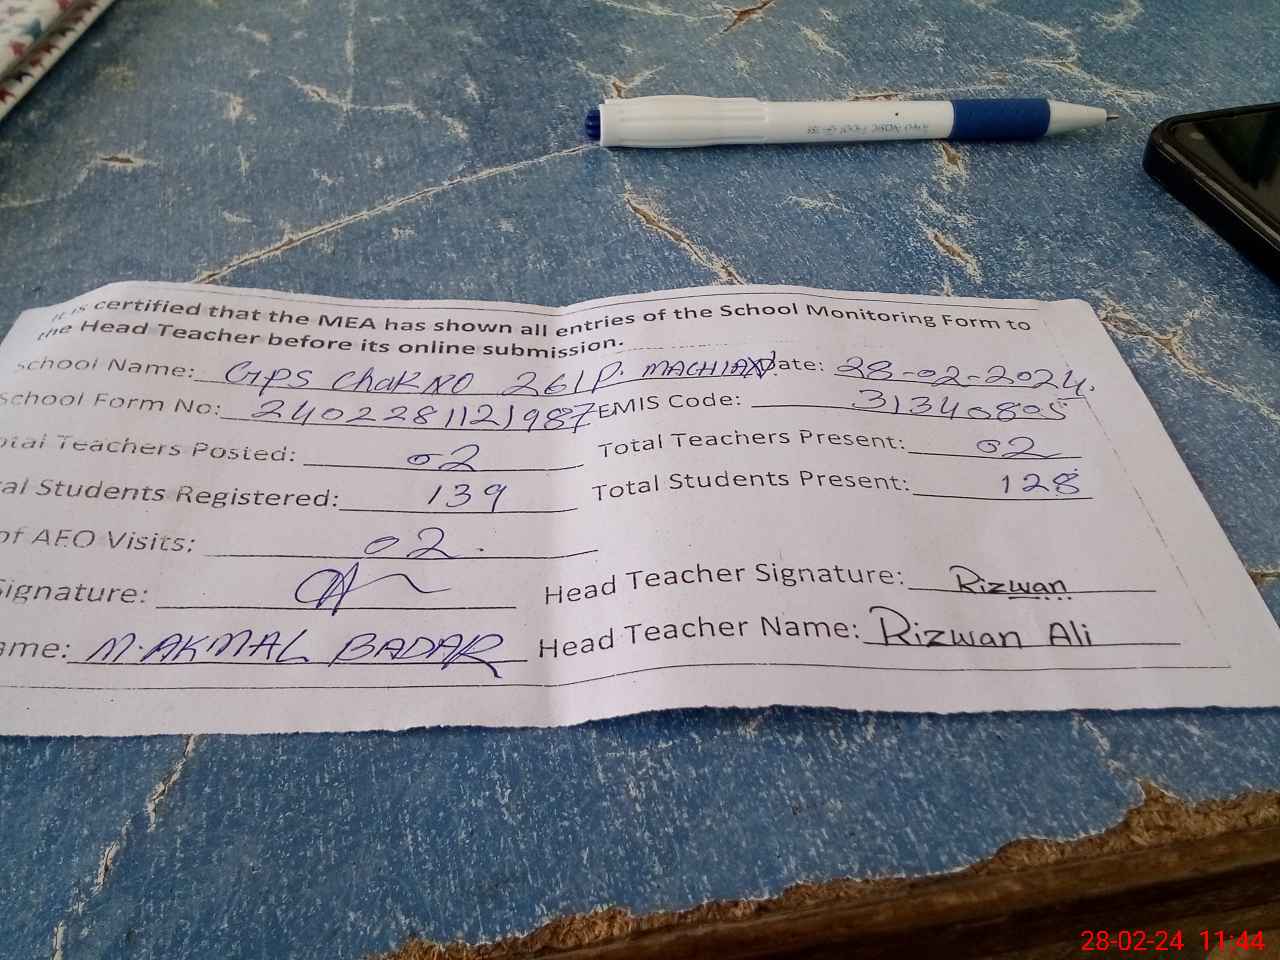 It is certified that the MEA has shown all entries of the School Monitoring Form to
the Head Teacher before its online submission.
School Name: GPS Chak NO 261P. MACHIAN Date: 28-02-2024.
School Form No: 2402281121987 EMIS Code: 31340805
otal Teachers Posted: 02 Total Teachers Present: 02
al Students Registered: 139 Total Students Present: 128
of AEO Visits: 02.
Signature: Head Teacher Signature: Rizwan
ame: M. AKMAL BADAR Head Teacher Name: Rizwan Ali
28-02-24 11:44